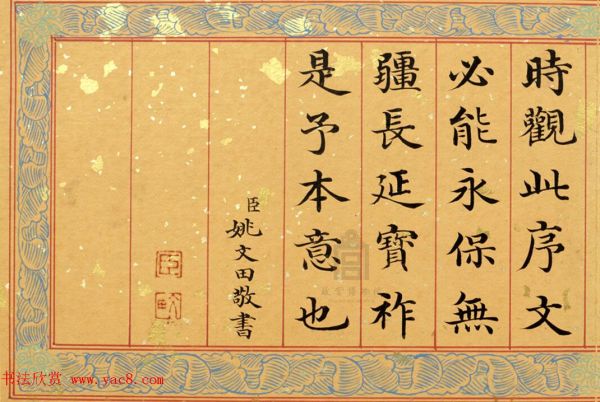 時觀此序文
必能永保無
疆長延寶祚
是予本意也
臣姚文田敬書
臣
书法欣赏 www.yac8.com